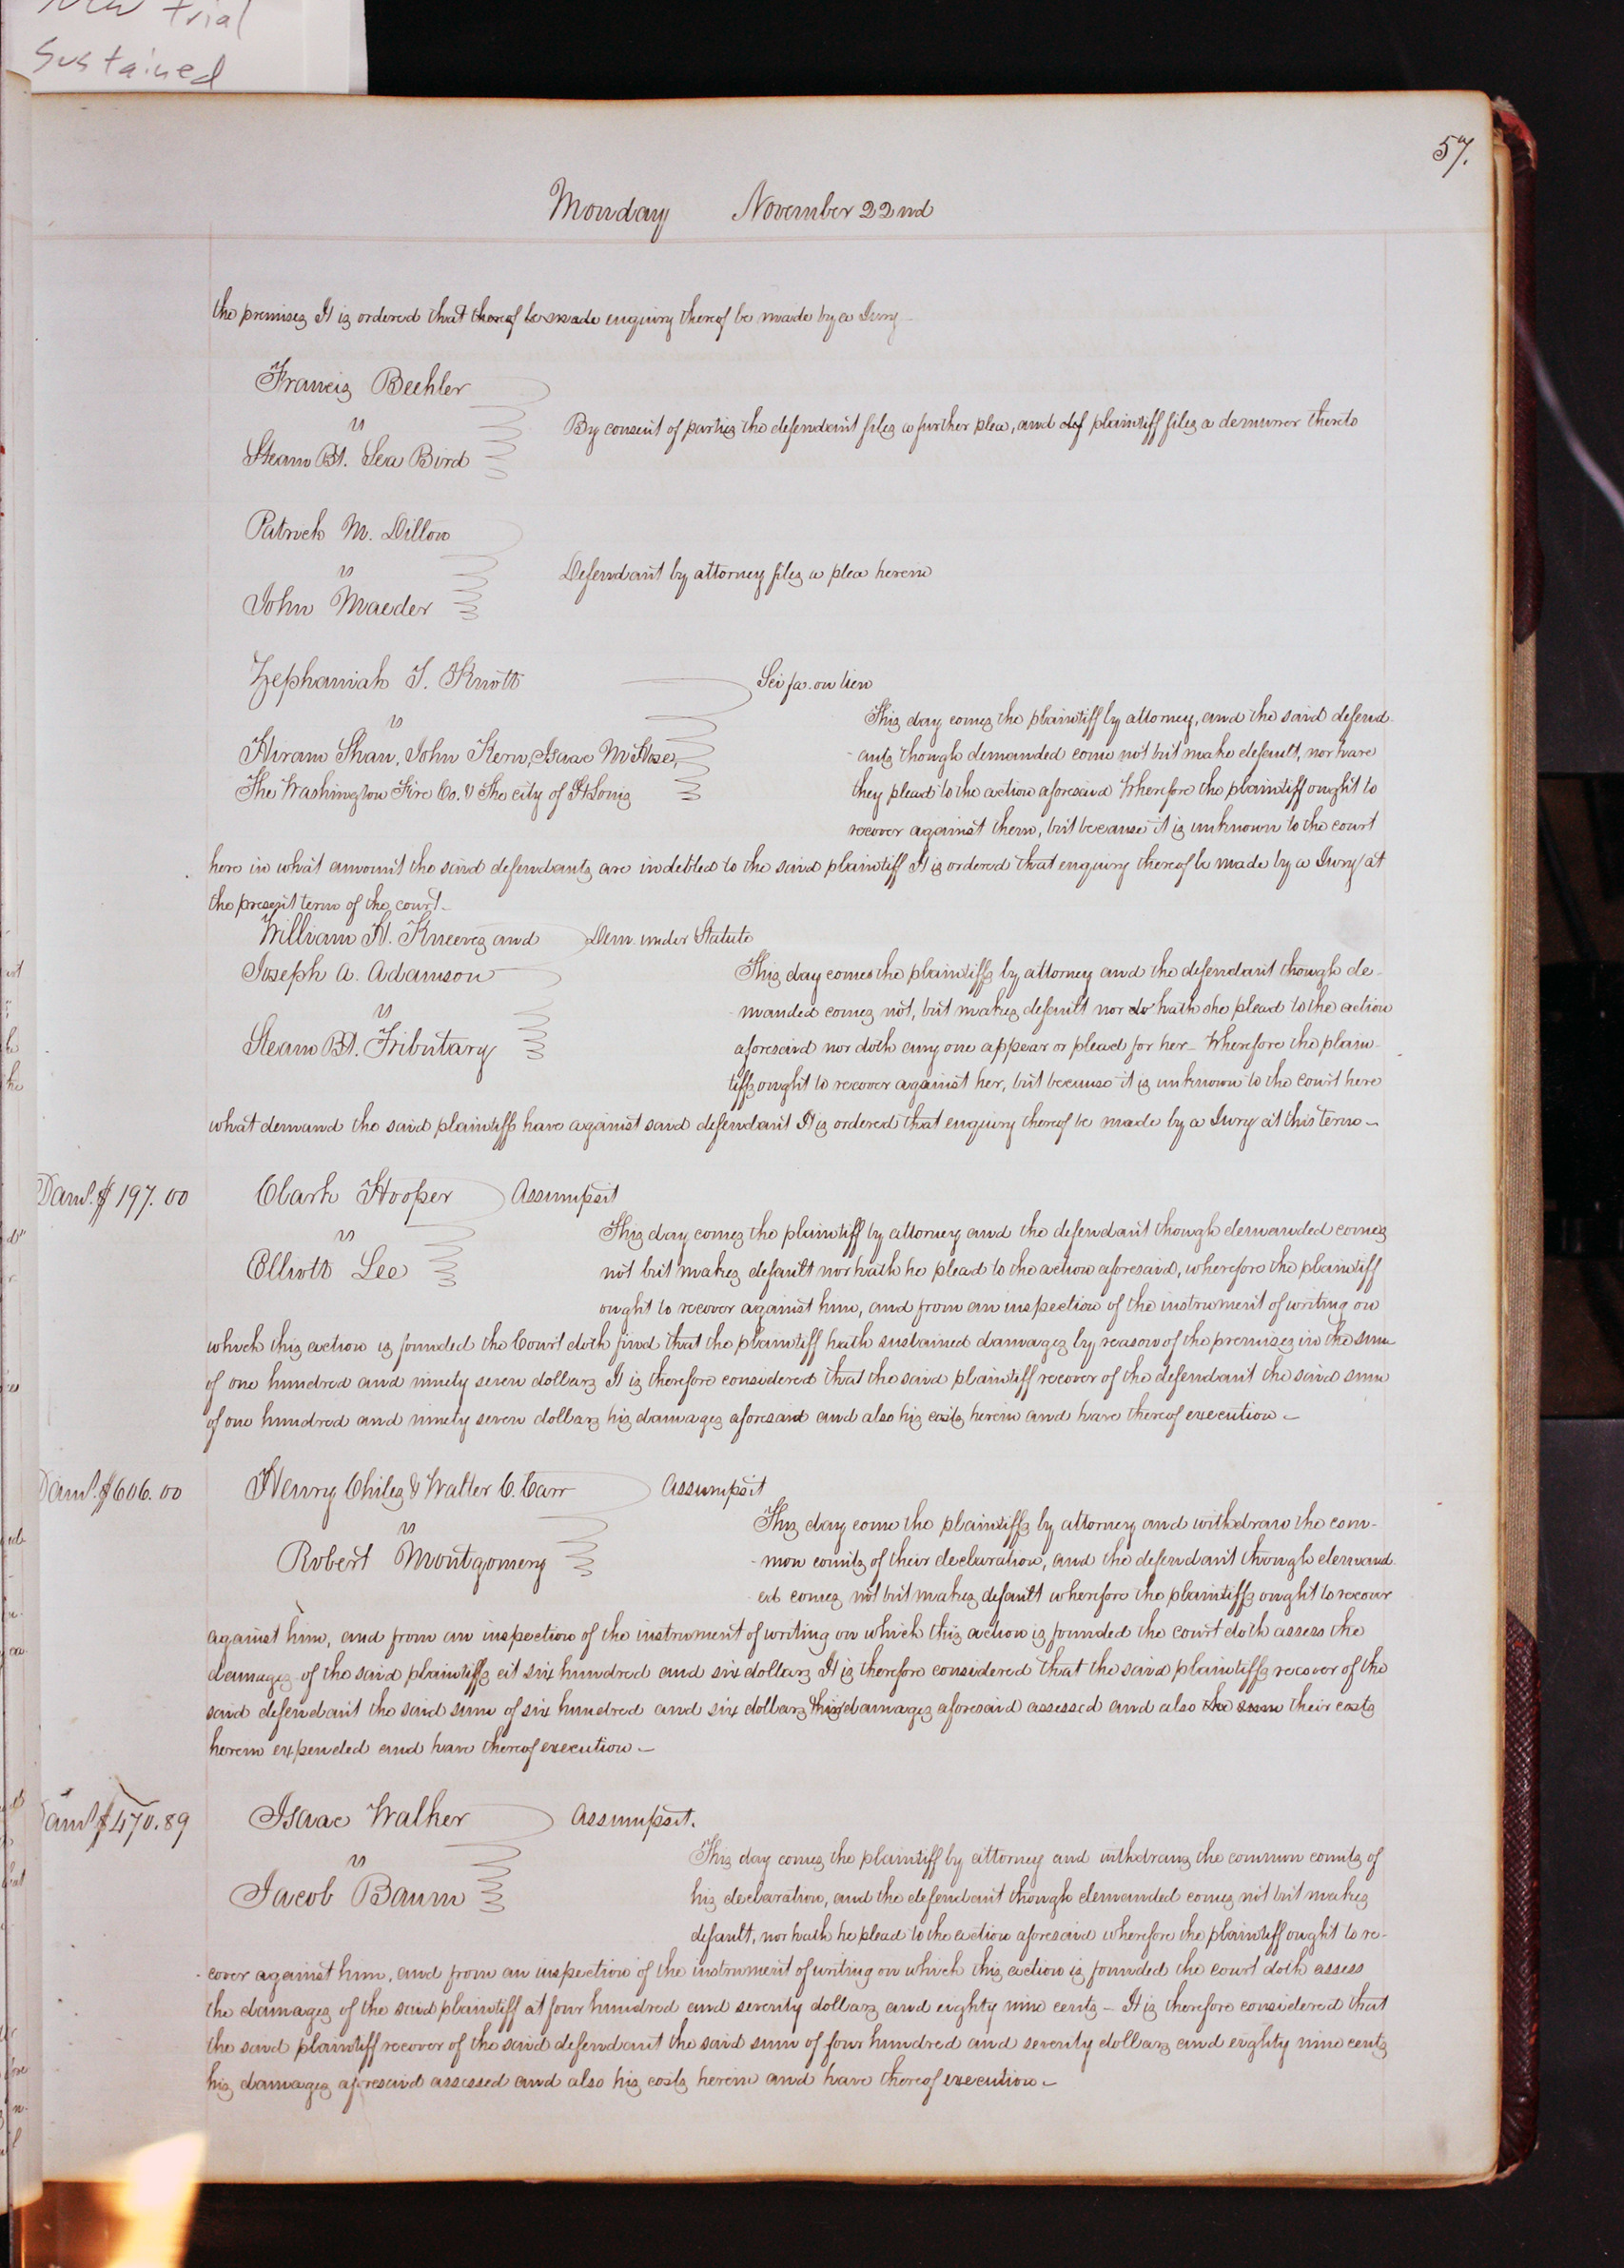 New trial
Sustained
57.
Monday November 22nd
the premises It is ordered that thereof be made enquiry thereof be made by a Jury
Francis Beehler
vs
Steam Bt. Sea Bird
By consent of parties the defendant files a further plea, and def plaintiff files a demurrer thereto
Patrick M. Dillon
vs
John Maeder
Defendant by attorney files a plea herein
Zephaniah T. Knott
vs
Hiram Shaw, John Kern, Isaac
The Washington Fire Co. & The city of St Louis
Sci fa. on lien
This day comes the plaintiff by attorney, and the said defend-
ants though demanded come not but make default, nor have
they plead to the action aforesaid Wherefore the plaintiff ought to
recover against them, but because it is unknown to the court
here in what amount the said defendants are indebted to the said plaintiff It is ordered that enquiry thereof be made by a Jury at
the present term of the court.
William H. Kneeves and
Joseph A. Adamson
vs
Steam Bt. Tributary
Dem. under Statute
This day comes the plaintiffs by attorney and the defendant though de-
manded comes not, but makes default nor do hath she plead to the action
aforesaid nor doth any one appear or plead for her Wherefore the plain-
tiffs ought to recover against her, but because it is unknown to the court here
what demand the said plaintiffs have against said defendant It is ordered that enquiry thereof be made by a Jury at this term
Dams. $197.00
Clark Hooper
vs
Elliott Lee
Assumpsit
This day comes the plaintiff by attorney and the defendant though demanded comes
not but makes default nor hath he plead to the action aforesaid, wherefore the plaintiff
ought to recover against him, and from an inspection of the instrument of writing on
which this action is founded the Court doth find that the plaintiff hath sustained damages by reason of the premises in the sum
of one hundred and ninety seven dollars It is therefore considered that the said plaintiff recover of the defendant the said sum
of one hundred and ninety seven dollars his damages aforesaid and also his costs herein and have thereof execution
Dams. $606.00
Henry Chiles & Walter C. Carr
vs
Robert Montgomery
Assumpsit
This day come the plaintiffs by attorney and withdraw the com-
mon counts of their declaration, and the defendant though demand-
ed comes not but makes default wherefore the plaintiffs ought to recover
against him, and from an inspection of the instrument of writing on which this action is founded the court doth assess the
damages of the said plaintiffs at six hundred and six dollars It is therefore considered that the said plaintiffs recover of the
said defendant the said sum of six hundred and six dollars damages aforesaid assessed and also the sum their costs
herein expended and have thereof execution
Dams $470.89
Isaac Walker
vs
Jacob Baum
Assumpsit.
This day comes the plaintiff by attorney and withdraws the common counts of
his declaration, and the defendant though demanded comes not but makes
default, nor hath he plead to the action aforesaid wherefore the plaintiff ought to re-
cover against him, and from an inspection of the instrument of writing on which this action is founded the court doth assess
the damages of the said plaintiff at four hundred and seventy dollars and eighty nine cents – It is therefore considered that
the said plaintiff recover of the said defendant the said sum of four hundred and seventy dollars and eighty nine cents
his damages aforesaid assessed and also his costs herein and have thereof execution